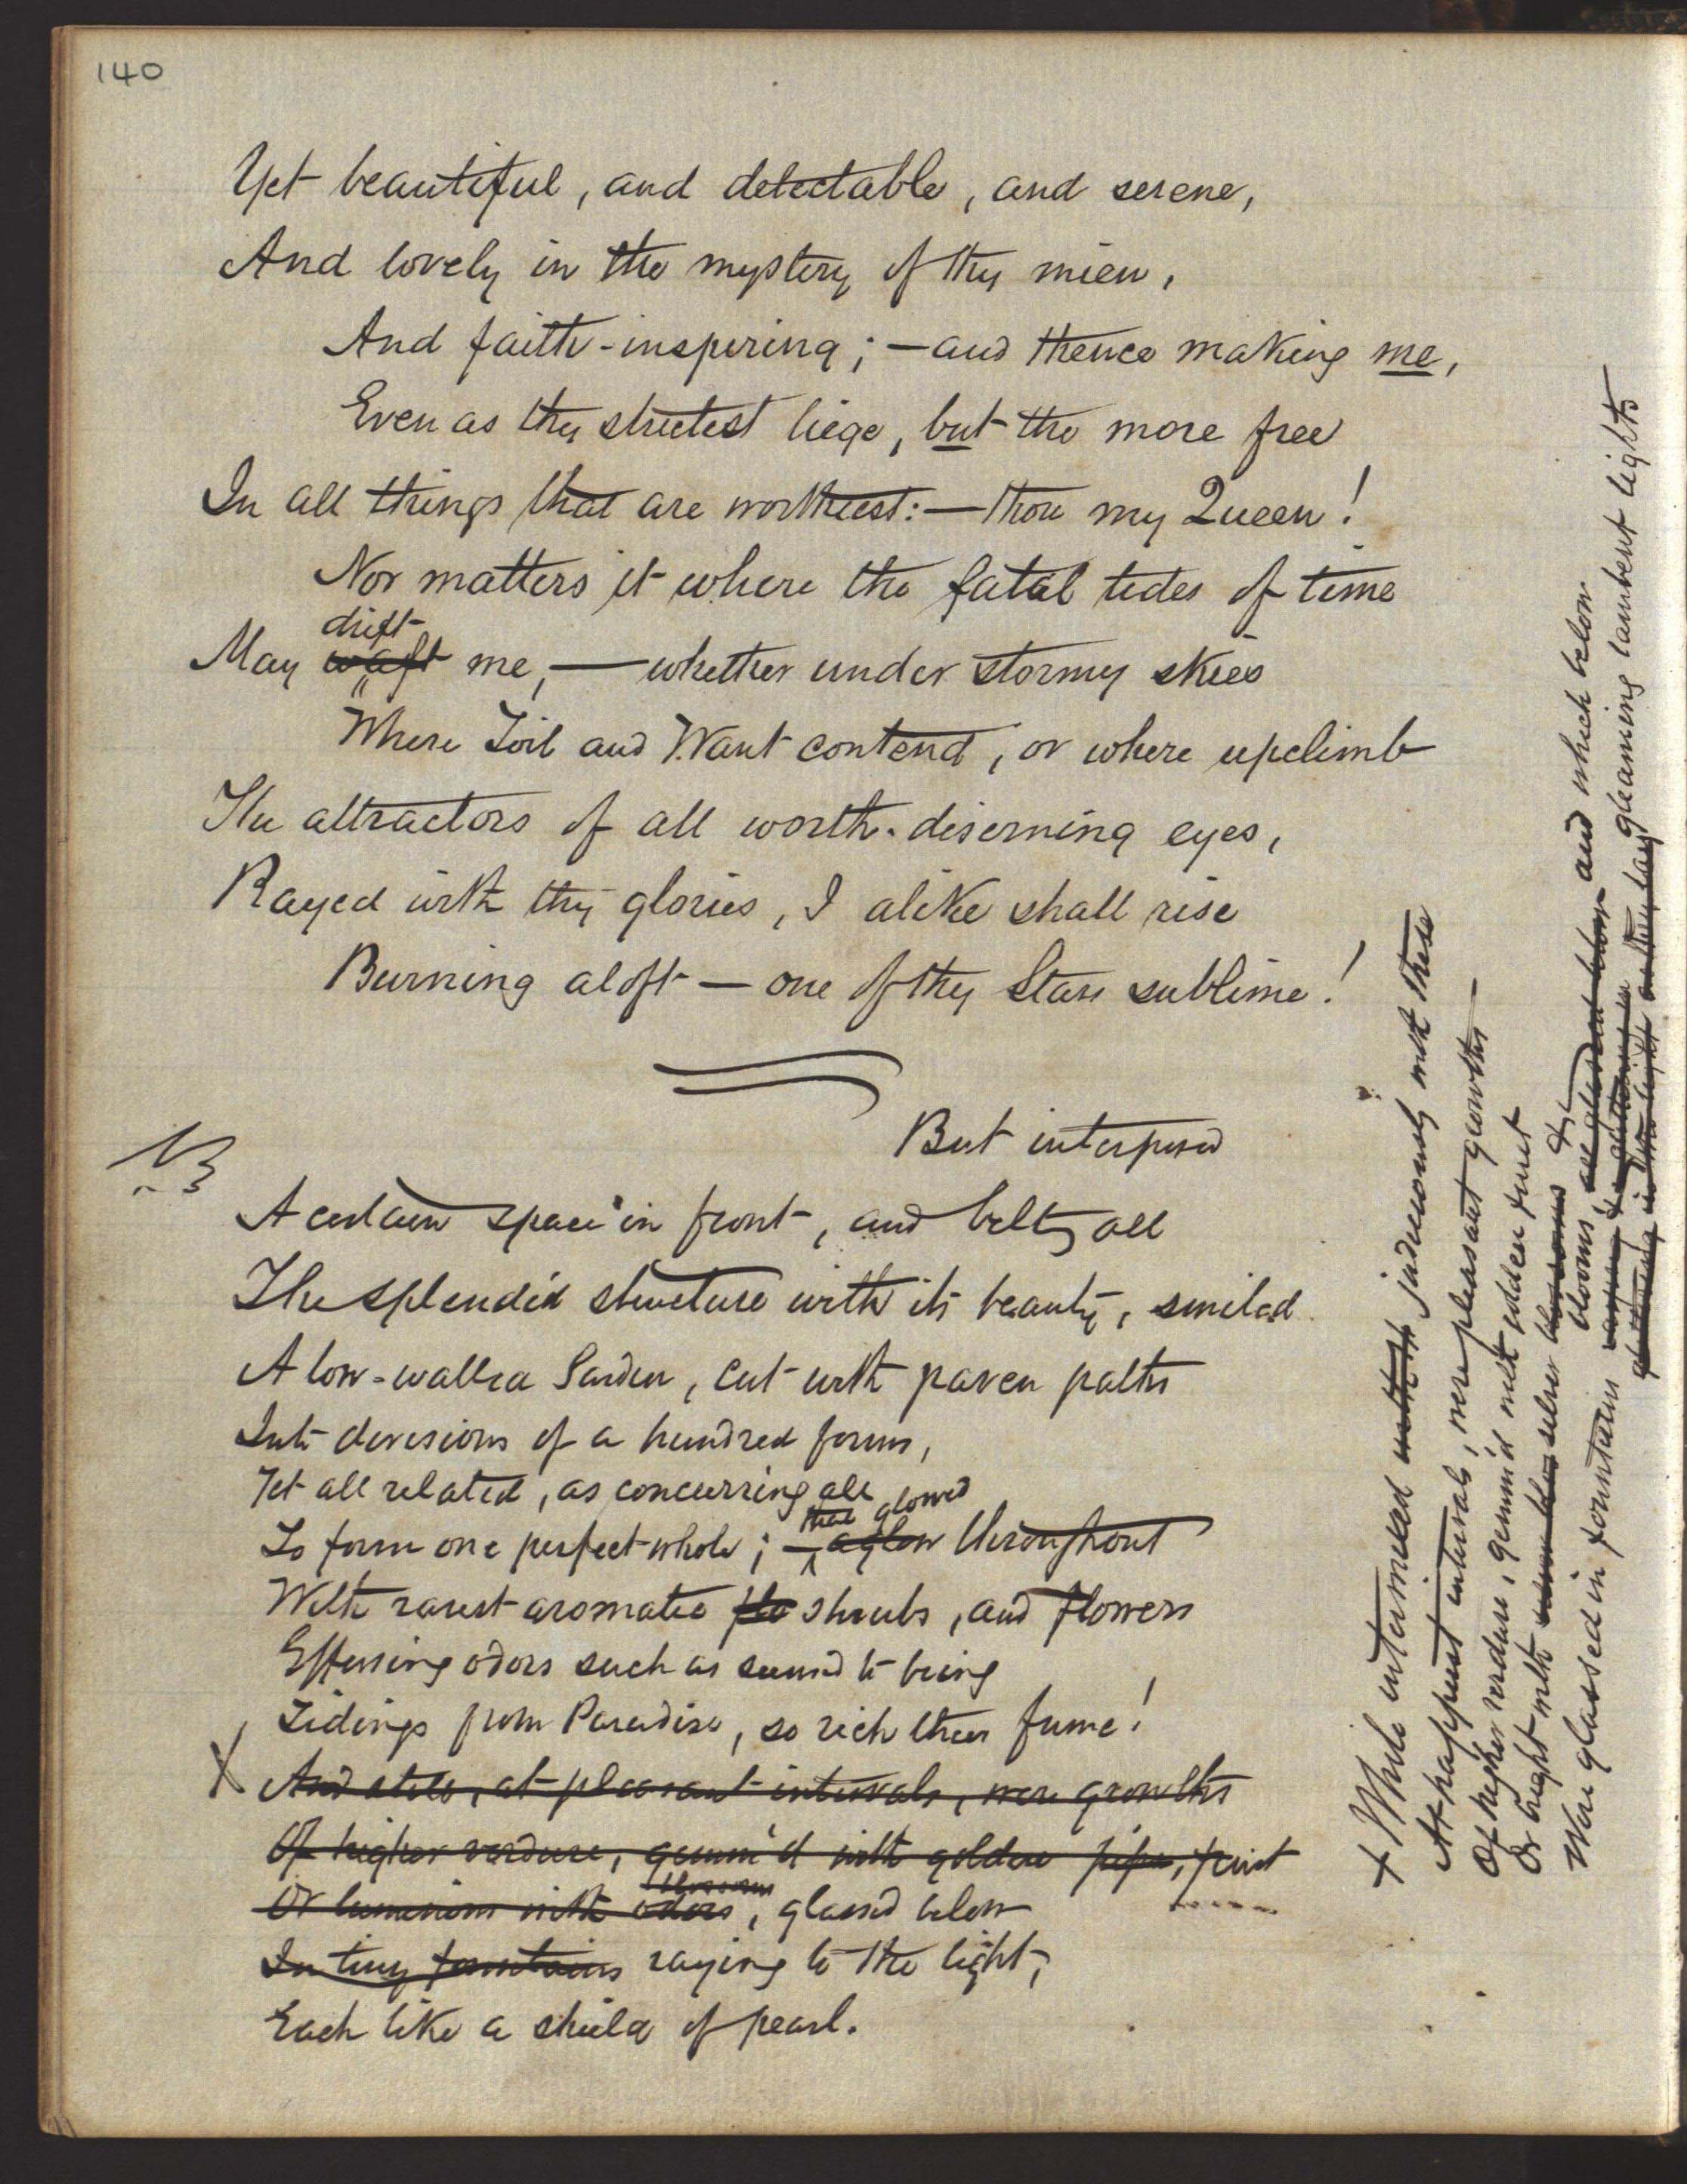 140
Yet beautiful, and delectable, and serene,
And lovely in the mystery of thy mien,
And faith-inspiring; — and thence making me,
Even as thy strictest liege, but the more free
In all things that are worthiest: — thou my Queen!
Nor matters it where the fatal tides of time
drift
May waft me, — whether under stormy skies
Where Toil and Want contend, or where upclimb
The attractors of all worth-discerning eyes,
Rayed with thy glories, I alike shall rise
Burning aloft — one of thy Stars sublime!
But interposed
NB
A certain space in front, and belting all
The splendid structure with its beauty, smiled
A low-walled Garden, cut with paven paths
Into devisions of a hundred forms,
Yet all related, as concurring all
that glowed
To form one perfect whole; — aglow throughout
With rarest aromatic flo shrubs, and flowers
Effusing odors such as seemed to bring
Tidings from Paradise, so rich their fume!
X And still, at pleasant intervals, were growths
Of higher verdure, gemm'd with golden pipe, fruit
blossoms
Or luminous with odors, glassed below
In tiny fountains raying to the light,
Each like a shield of pearl.
+ While intermixed judiciously with these
At happiest intervals, were pleasant growths —
Of higher verdure, gemm'd with golden fruit
Or bright with silver blossoms
blooms, and which below
Were glassed in fountains gleaming lambent lights